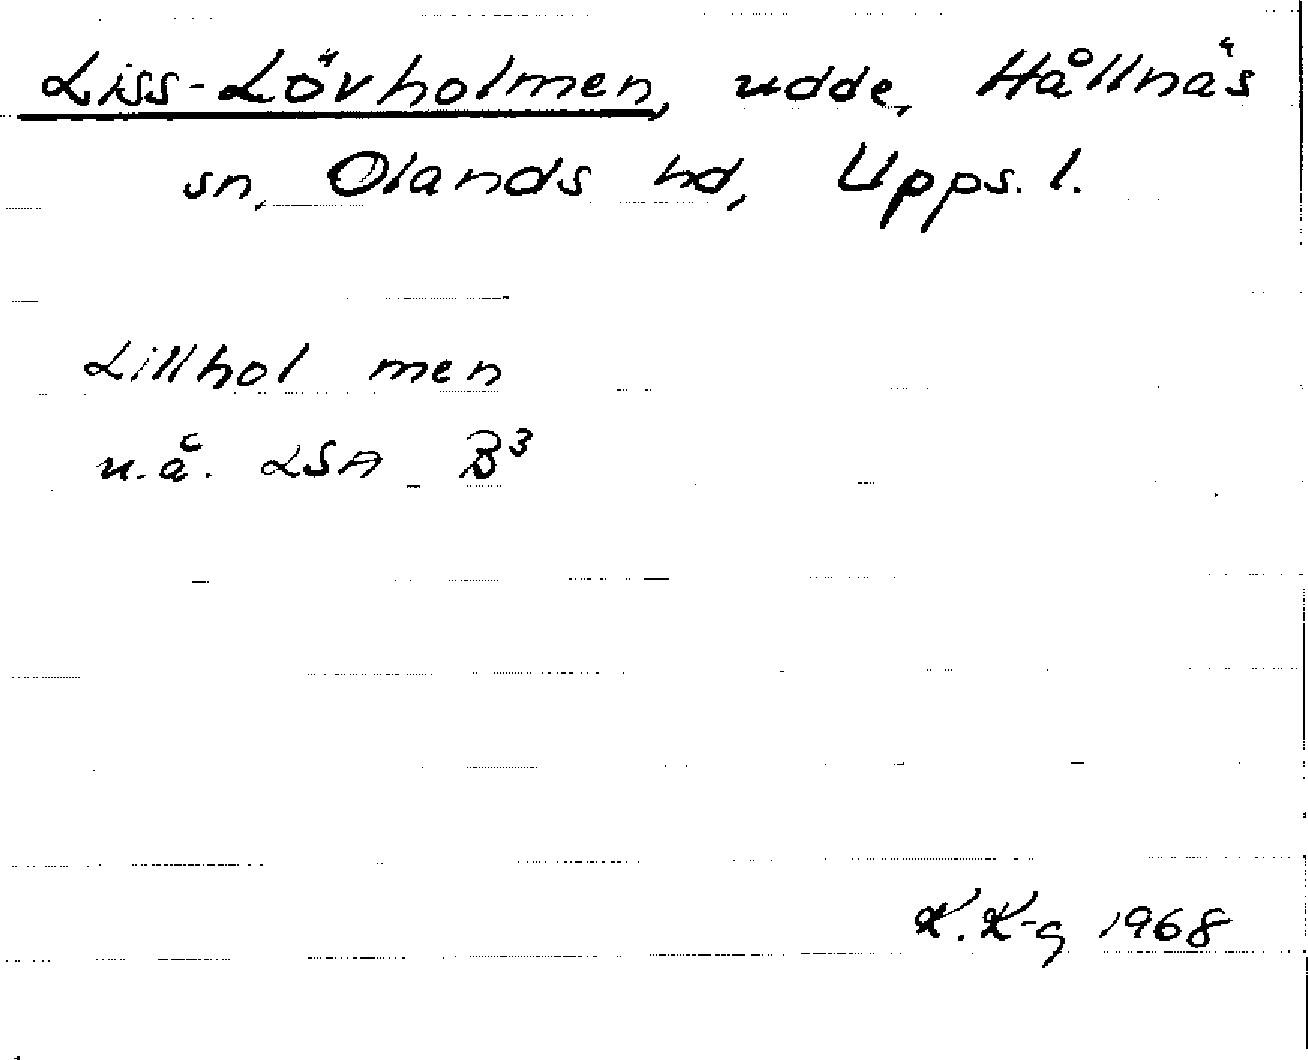 Liss-Lövholmen, udde, Hållnäs
sn, Olands hd, Upps. l.
Lillhol men
u.å. LSA B³
K. K-g 1968